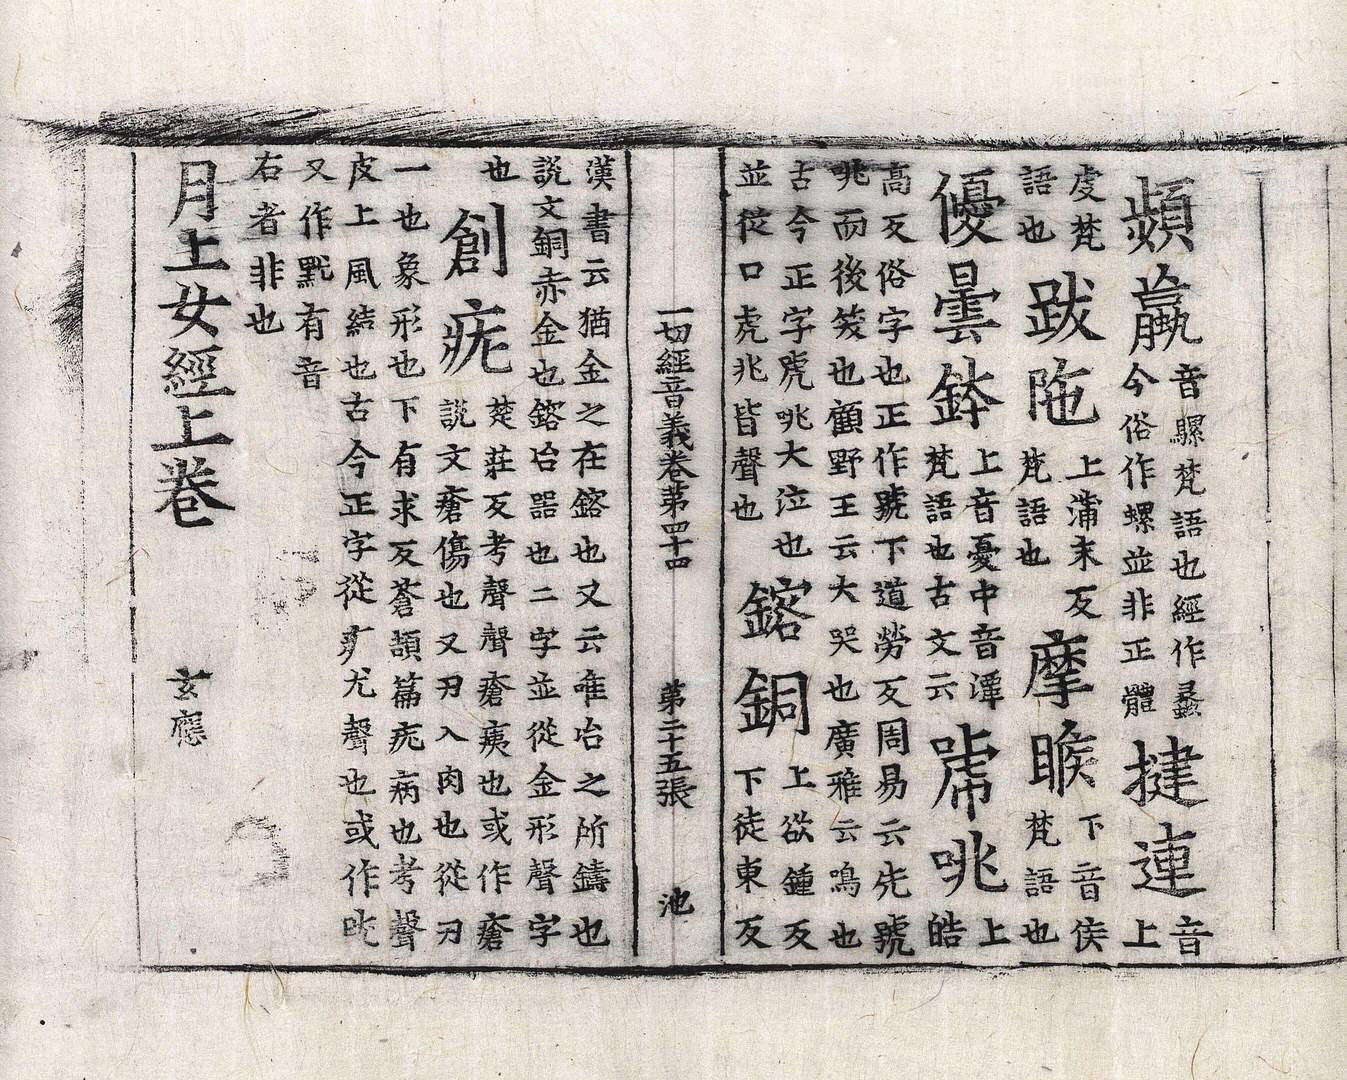 頻蠃音騾梵語也經作蠡今俗作螺並非正體揵連音上
虔梵語也跋陁上蒲末反梵語也摩睺下音侯梵語也
優曇鉢上音憂中音潭梵語也古文云咷上皓
高反俗字也正作號下道勞反周易云先號咷而後笑也顧野王云大哭也廣雅云鳴也
古今正字號咷大泣也並從口虎兆皆聲也鎔銅上欲鍾反下徒東反
一切經音義卷第四十四 第二十五張 池
漢書云猶金之在鎔也又云唯冶之所鑄也說文銅赤金也鎔冶器也二字並從金形聲字
也創疣楚莊反考聲聲瘡痍也或作瘡說文瘡傷也又刃入肉也從刃
一也象形也下有求反蒼頡篇疣病也考聲皮上風結也古今正字從疒尤聲也或作肬
又作默有音右者非也
月上女經上卷 玄應